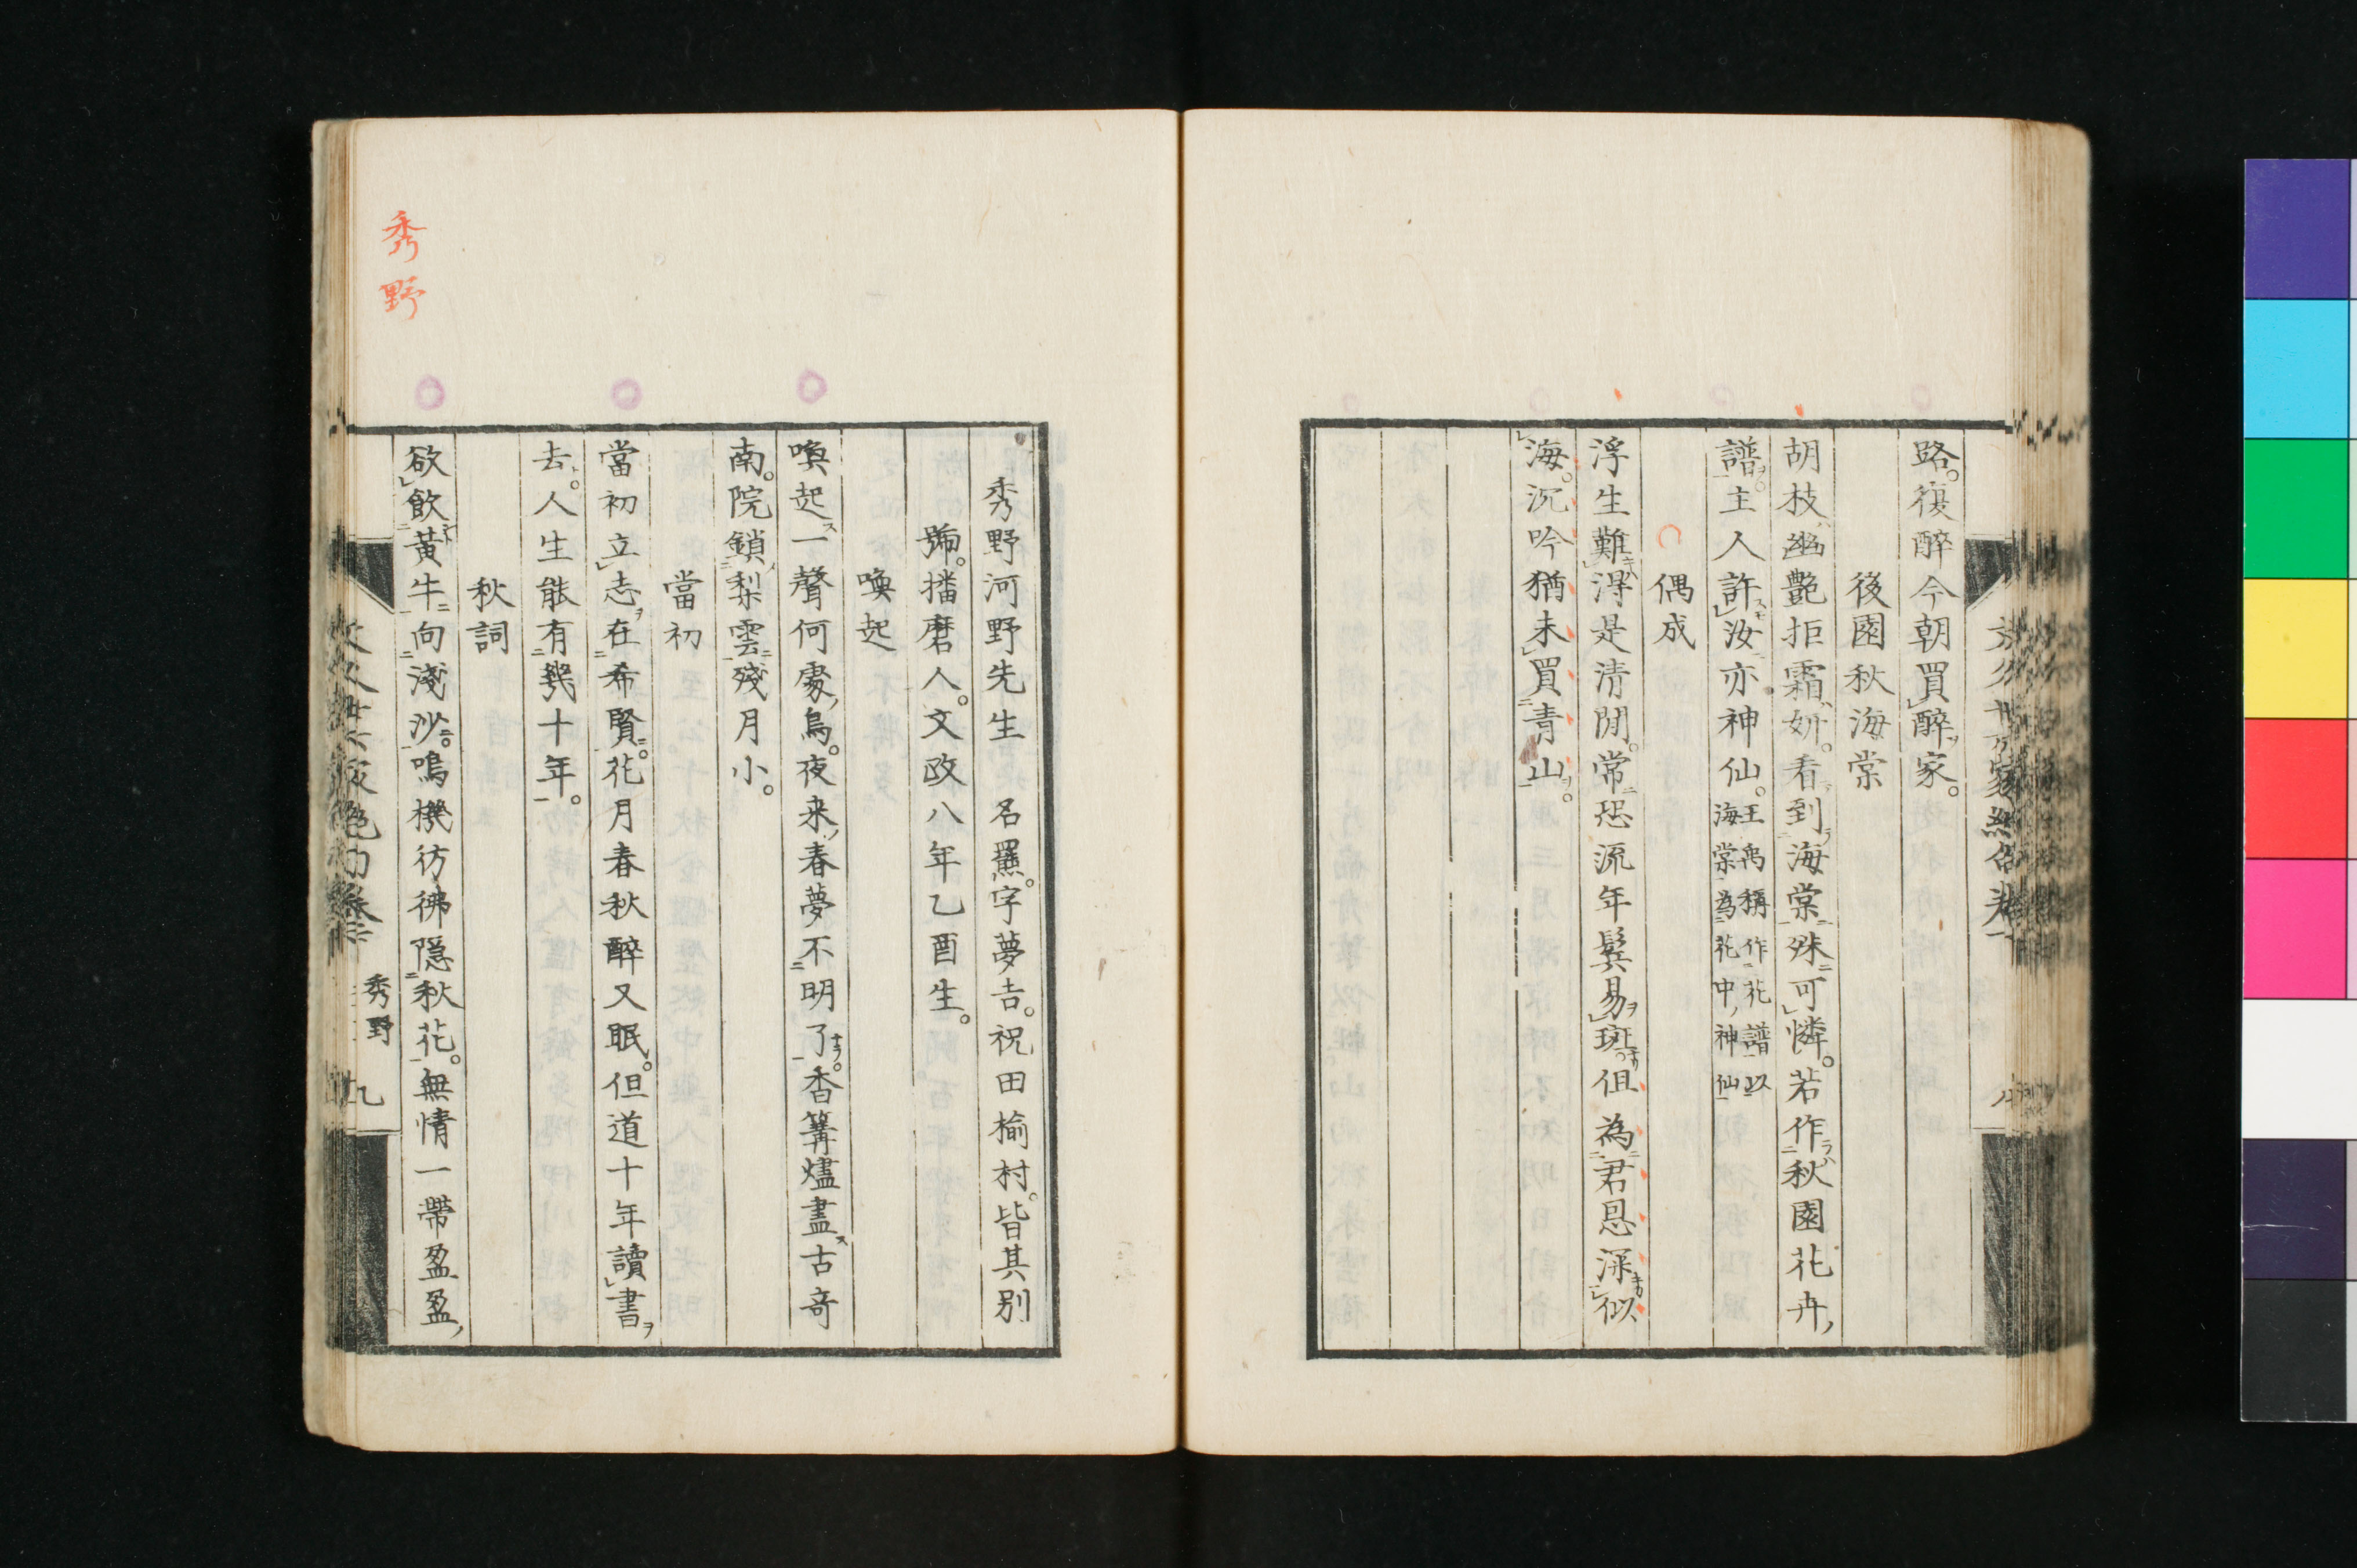 路。復醉今朝買醉家。
後園秋海棠
胡枝幽艷拒霜妍。看到海棠殊可憐。若作秋園花卉
譜。主人許汝亦神仙。王禹稱作花譜以海棠為花中神仙
偶成
浮生難得是清閒。常恐流年鬢易斑。但為君恩深似
海。沉吟猶未買青山。
秀野
秀野河野先生 名羆。字夢吉。祝田榆村。皆其別
號。播磨人。文政八年乙酉生。
喚起
喚起一聲何處鳥。夜来春夢不明了。香篝燼盡古奇
南。院鎖梨雲殘月小。
當初
當初立志在希賢。花月春秋醉又眠。但道十年讀書
去。人生能有幾十年。
秋詞
欲飲黃牛向淺沙。鳴機彷彿隠秋花。無情一帶盈盈
秀野 九